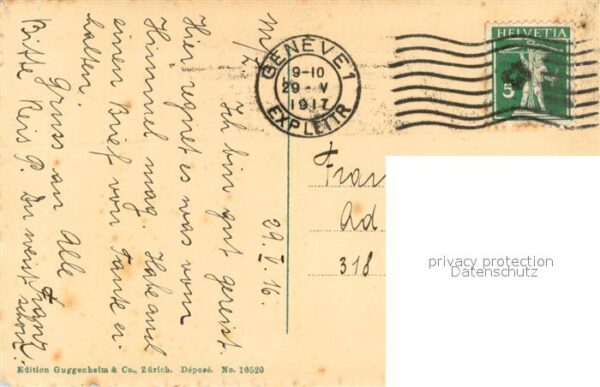 29. V. 16.
M/Z.
Ich bin gut gereist.
Hier regnet es was vom
Himmel mag. Habe auch
einen Brief von Tante er-
halten.
Gruss an Alle
Franz
Bitte Reis P. Du weist schon.
GENÈVE 1
9-10
29. V
1917
EXP. LETTR.
HELVETIA
5
Fran
Ad
318
privacy protection
Datenschutz
Edition Guggenheim & Co., Zürich. Déposé. No. 10520